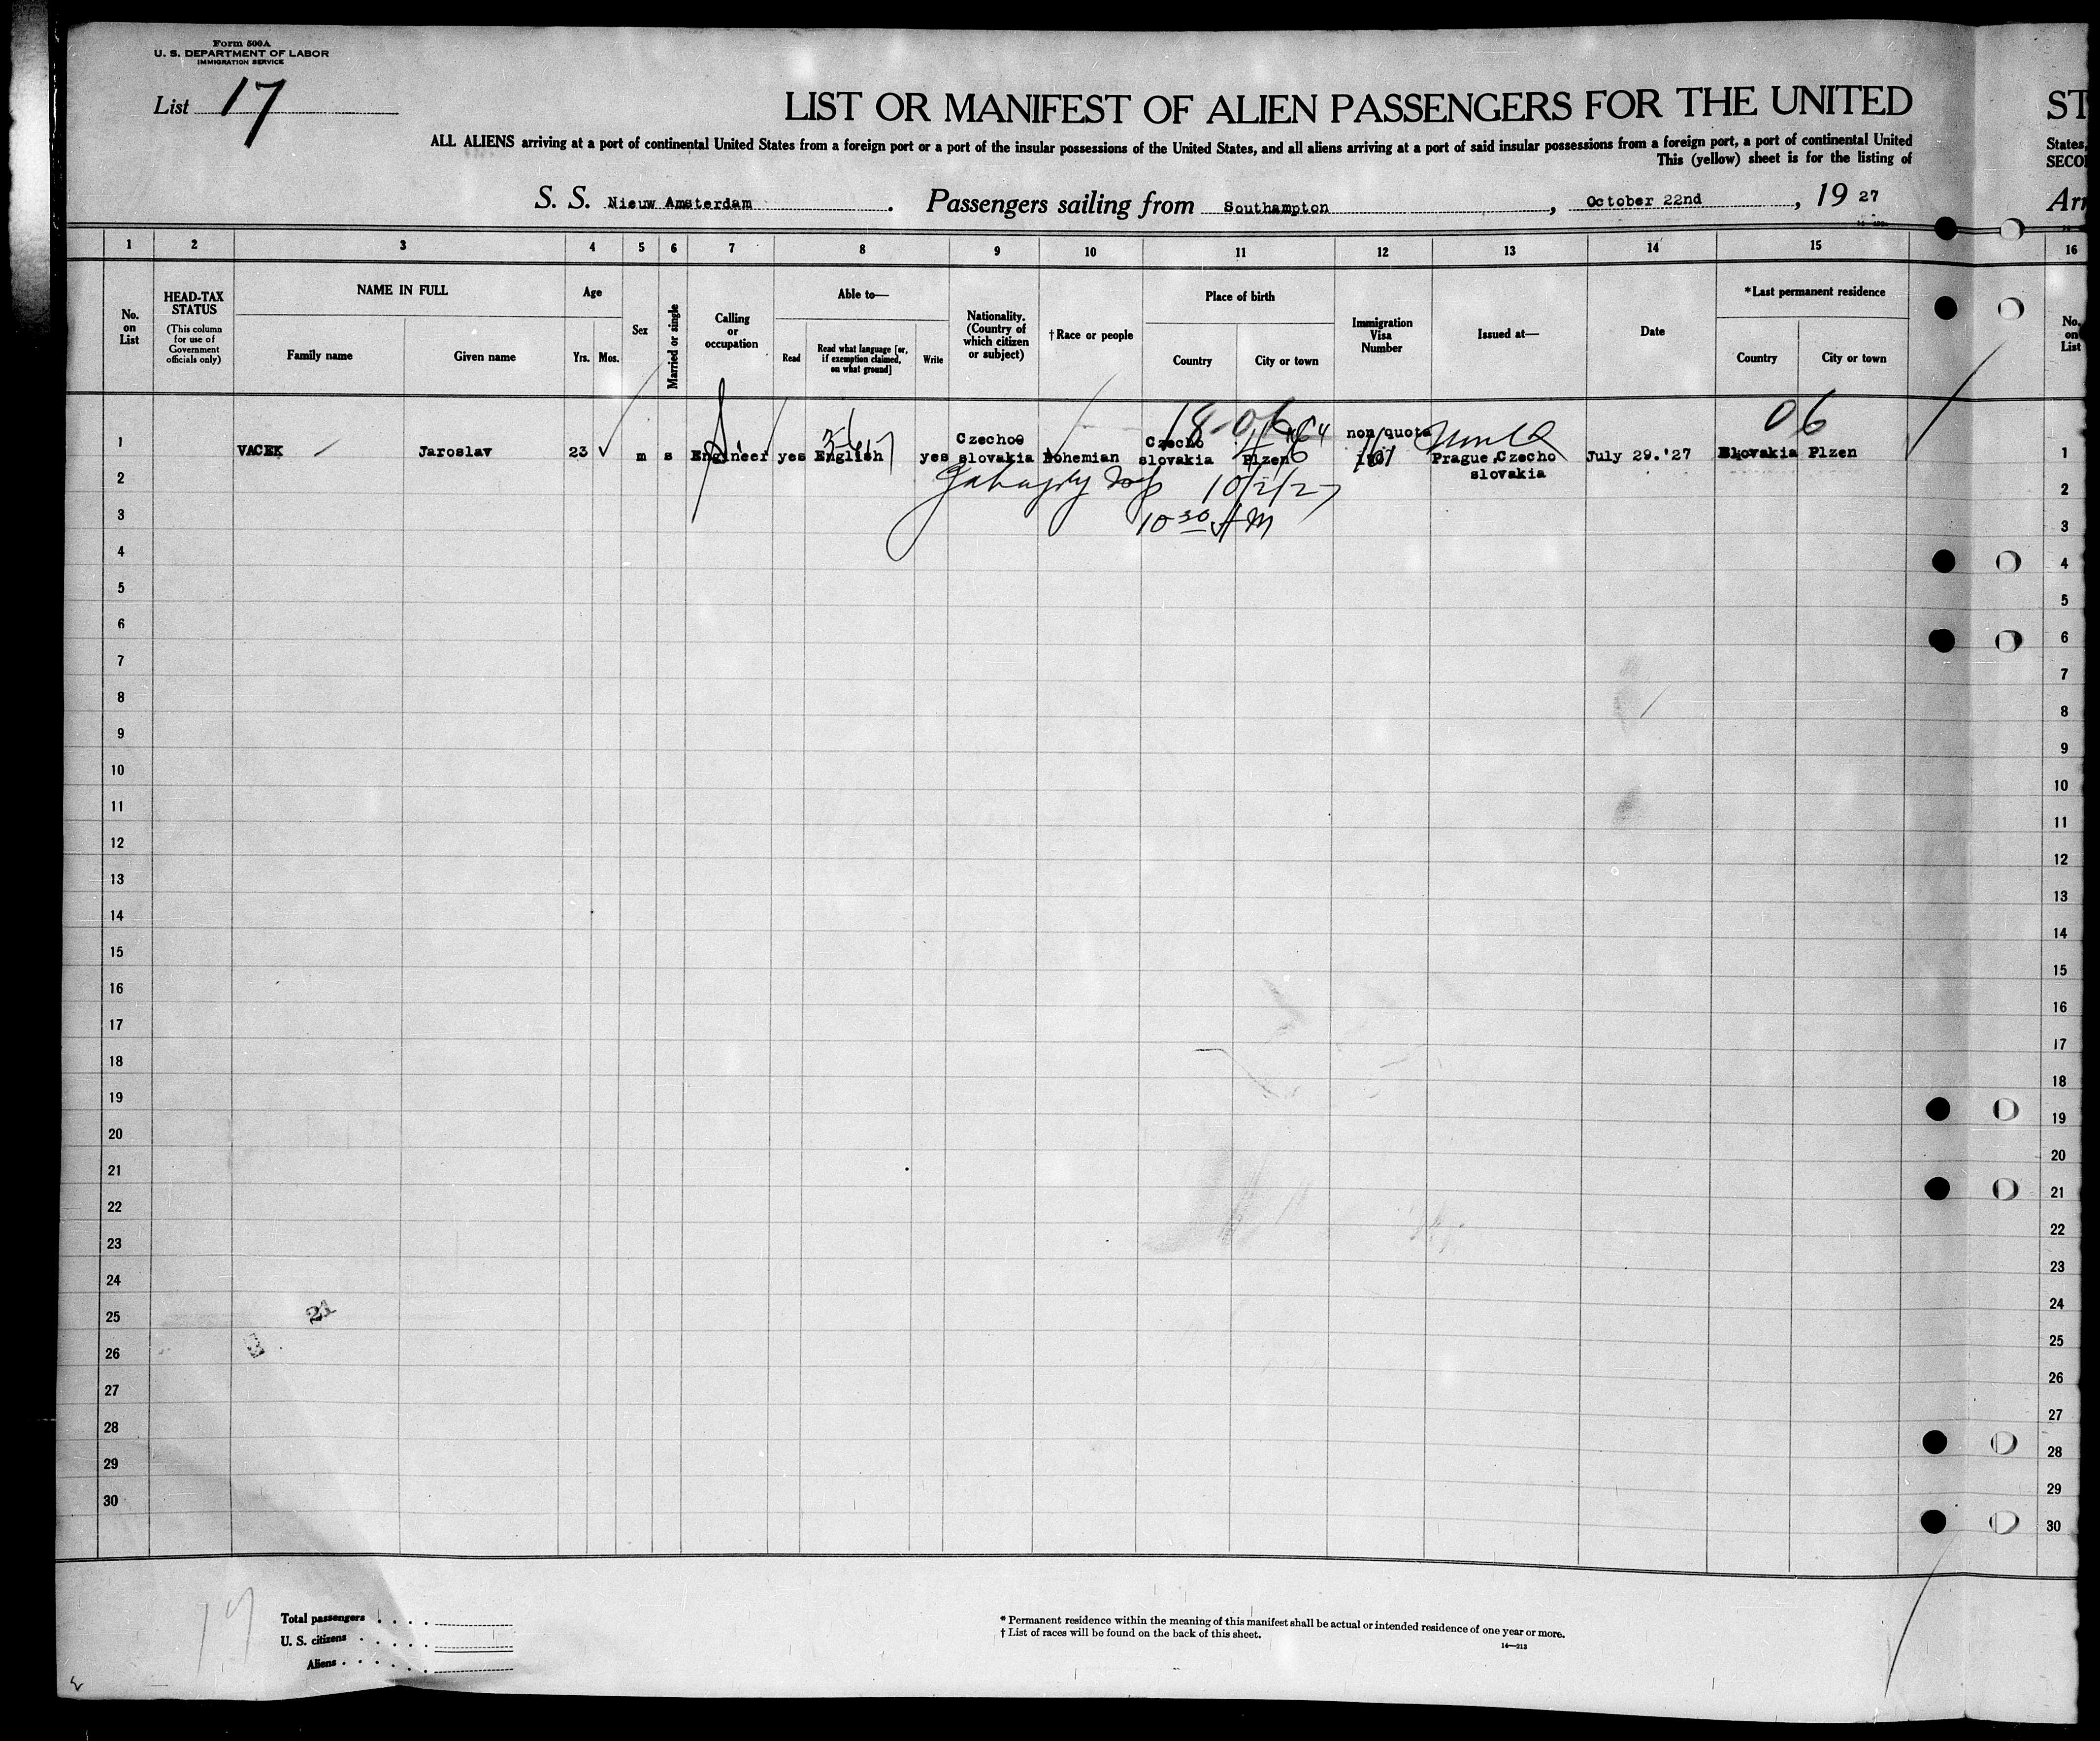 Form 500A
U. S. DEPARTMENT OF LABOR
IMMIGRATION SERVICE
List 17
LIST OR MANIFEST OF ALIEN PASSENGERS FOR THE UNITED ST
ALL ALIENS arriving at a port of continental United States from a foreign port or a port of the insular possessions of the United States, and all aliens arriving at a port of said insular possessions from a foreign port, a port of continental United States,
This (yellow) sheet is for the listing of SECO
S. S. Nieuw Amsterdam. Passengers sailing from Southampton, October 22nd, 19 27 Arr
1 2 3 4 5 6 7 8 9 10 11 12 13 14 15 16
No. on List
HEAD-TAX STATUS
(This column for use of Government officials only)
NAME IN FULL
Family name Given name
Age
Yrs. Mos.
Sex
Married or single
Calling or occupation
Able to—
Read
Read what language [or, if exemption claimed, on what ground]
Write
Nationality. (Country of which citizen or subject)
† Race or people
Place of birth
Country City or town
Immigration Visa Number
Issued at—
Date
*Last permanent residence
Country City or town
No. on List
18-06 06
1 VACEK Jaroslav 23 m s Engineer yes English yes Czecho slovakia Bohemian Czecho slovakia Plzen non quota Prague,Czecho slovakia July 29.'27 Slovakia Plzen 1
2 2
10 30 AM
3 3
4 4
5 5
6 6
7 7
8 8
9 9
10 10
11 11
12 12
13 13
14 14
15 15
16 16
17 17
18 18
19 19
20 20
21 21
22 22
23 23
24 24
21
25 25
26 26
27 27
28 28
29 29
30 30
17
Total passengers . . . .
U. S. citizens . . . . .
Aliens . . . . . .
* Permanent residence within the meaning of this manifest shall be actual or intended residence of one year or more.
† List of races will be found on the back of this sheet.
14—213